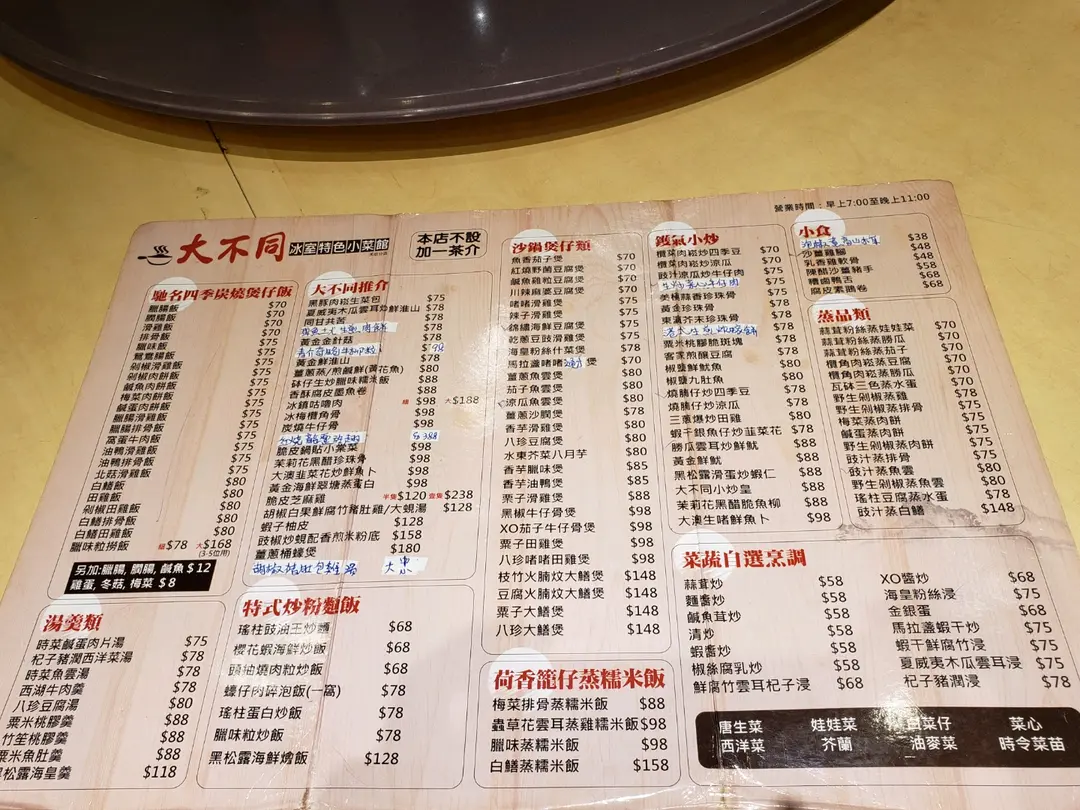 營業時間：早上7:00至晚上11:00
大不同
冰室特色小菜館
本店不設
加一茶介
馳名四季炭燒煲仔飯
臘腸飯 $70
膶腸飯 $70
滑雞飯 $70
排骨飯 $70
臘味飯 $75
鴛鴦腸飯 $75
剁椒滑雞飯 $75
剁椒肉餅飯 $75
鹹魚肉餅飯 $75
梅菜肉餅飯 $75
鹹蛋肉餅飯 $75
臘腸滑雞飯 $75
臘腸排骨飯 $75
窩蛋牛肉飯 $75
油鴨滑雞飯 $75
油鴨排骨飯 $75
北菇滑雞飯 $75
白鱔飯 $80
田雞飯 $80
剁椒田雞飯 $80
白鱔排骨飯 $80
白鱔田雞飯 $80
臘味粒撈飯 細$78 大$168
(3-5位用)
另加:臘腸, 膶腸, 鹹魚 $12
雞蛋, 冬菇, 梅菜 $8
湯羹類
時菜鹹蛋肉片湯 $75
杞子豬潤西洋菜湯 $78
時菜魚雲湯 $78
西湖牛肉羹 $78
八珍豆腐羹 $80
粟米桃膠羹 $88
竹笙桃膠羹 $88
粟米魚肚羹 $88
松露海皇羹 $118
大不同推介
黑豚肉崧生菜包 $75
夏威夷木瓜雲耳炒鮮淮山 $78
同甘共苦 $78
黃金金針菇 $78
黃金鮮淮山 $78
薑蔥蒸/煎鹹鮮(黃花魚) $80
砵仔生炒臘味糯米飯 $88
香酥腐皮墨魚卷 $88
冰鎮咕嚕肉 細 $98 大$188
冰梅欖角骨 $98
炭燒牛仔骨 $98
脆皮鍋貼小棠菜 $98
茉莉花黑醋珍珠骨 $98
大澳韭菜花炒鮮魚卜 $98
黃金海鮮翠塘蒸蛋白 $98
脆皮芝麻雞 半隻$120 壹隻$238
胡椒白果鮮腐竹豬肚雞/大蜆湯 $128
蝦子柚皮 $128
豉椒炒蜆配香煎米粉底 $158
薑蔥桶蠔煲 $180
特式炒粉麵飯
瑤柱豉油王炒麵 $68
櫻花蝦海鮮炒飯 $68
頭抽燒肉粒炒飯 $68
蠔仔肉碎泡飯(一窩) $78
瑤柱蛋白炒飯 $78
臘味粒炒飯 $78
黑松露海鮮燴飯 $128
沙鍋煲仔類
魚香茄子煲 $70
紅燒野菌豆腐煲 $70
鹹魚雞粒豆腐煲 $70
川辣麻婆豆腐煲 $70
啫啫滑雞煲 $75
辣子滑雞煲 $75
錦繡海鮮豆腐煲 $75
乾蔥豆豉滑雞煲 $75
海皇粉絲什菜煲 $75
馬拉盞啫啫 煲 $75
薑蔥魚雲煲 $80
茄子魚雲煲 $80
涼瓜魚雲煲 $80
薑蔥沙膶煲 $78
香芋滑雞煲 $80
八珍豆腐煲 $80
水東芥菜八月芋 $80
香芋臘味煲 $85
香芋油鴨煲 $85
栗子滑雞煲 $88
黑椒牛仔骨煲 $98
XO茄子牛仔骨煲 $98
栗子田雞煲 $98
八珍啫啫田雞煲 $98
枝竹火腩炆大鱔煲 $148
豆腐火腩炆大鱔煲 $148
栗子大鱔煲 $148
八珍大鱔煲 $148
荷香籠仔蒸糯米飯
梅菜排骨蒸糯米飯 $88
蟲草花雲耳蒸雞糯米飯$98
臘味蒸糯米飯 $98
白鱔蒸糯米飯 $158
鑊氣小炒
欖菜肉崧炒四季豆 $70
欖菜肉崧炒涼瓜 $70
豉汁涼瓜炒牛仔肉 $75
美極蒜香珍珠骨 $75
黃金珍珠骨 $75
東瀛芥末珍珠骨 $75
粟米桃膠臆斑塊 $78
客家煎釀豆腐 $78
椒鹽鮮魷魚 $80
椒鹽九肚魚 $80
燒腩仔炒四季豆 $78
燒腩仔炒涼瓜 $78
三蔥爆炒田雞 $80
蝦干銀魚仔炒韮菜花 $78
勝瓜雲耳炒鮮魷 $88
黃金鮮魷 $88
黑松露滑蛋炒蝦仁 $88
大不同小炒皇 $88
茉莉花黑醋脆魚柳 $88
大澳生啫鮮魚卜 $98
小食
$38
沙薑雞腳 $48
乳香雞軟骨 $48
陳醋沙薑豬手 $58
糟鹵鴨舌 $68
腐皮素鵝卷 $68
蒸品類
蒜茸粉絲蒸娃娃菜 $70
蒜茸粉絲蒸勝瓜 $70
蒜茸粉絲蒸茄子 $70
欖角肉崧蒸豆腐 $70
欖角肉崧蒸勝瓜 $70
瓦砵三色蒸水蛋 $70
野生剁椒蒸雞 $75
野生剁椒蒸排骨 $75
梅菜蒸肉餅 $75
鹹蛋蒸肉餅 $75
野生剁椒蒸肉餅 $75
豉汁蒸排骨 $75
豉汁蒸魚雲 $80
野生剁椒蒸魚雲 $80
瑤柱豆腐蒸水蛋 $78
豉汁蒸白鱔 $148
菜蔬自選烹調
蒜茸炒 $58
麵醬炒 $58
鹹魚茸炒 $58
清炒 $58
蝦醬炒 $58
椒絲腐乳炒 $58
鮮腐竹雲耳杞子浸 $68
XO醬炒 $68
海皇粉絲浸 $75
金銀蛋 $68
馬拉盞蝦干炒 $75
蝦干鮮腐竹浸 $75
夏威夷木瓜雲耳浸 $75
杞子豬潤浸 $78
唐生菜 娃娃菜 白菜仔 菜心
西洋菜 芥蘭 油麥菜 時令菜苗